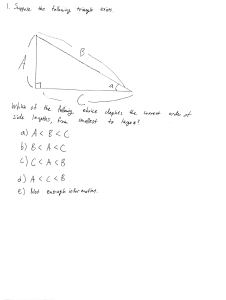 1. Suppose the following triangle exists.
B
A
a
C
Which of the following choice depicts the correct order of
side lengths, from smallest to largest?
a) A < B < C
b) B < A < C
c) C < A < B
d) A < C < B
e) Not enough information.